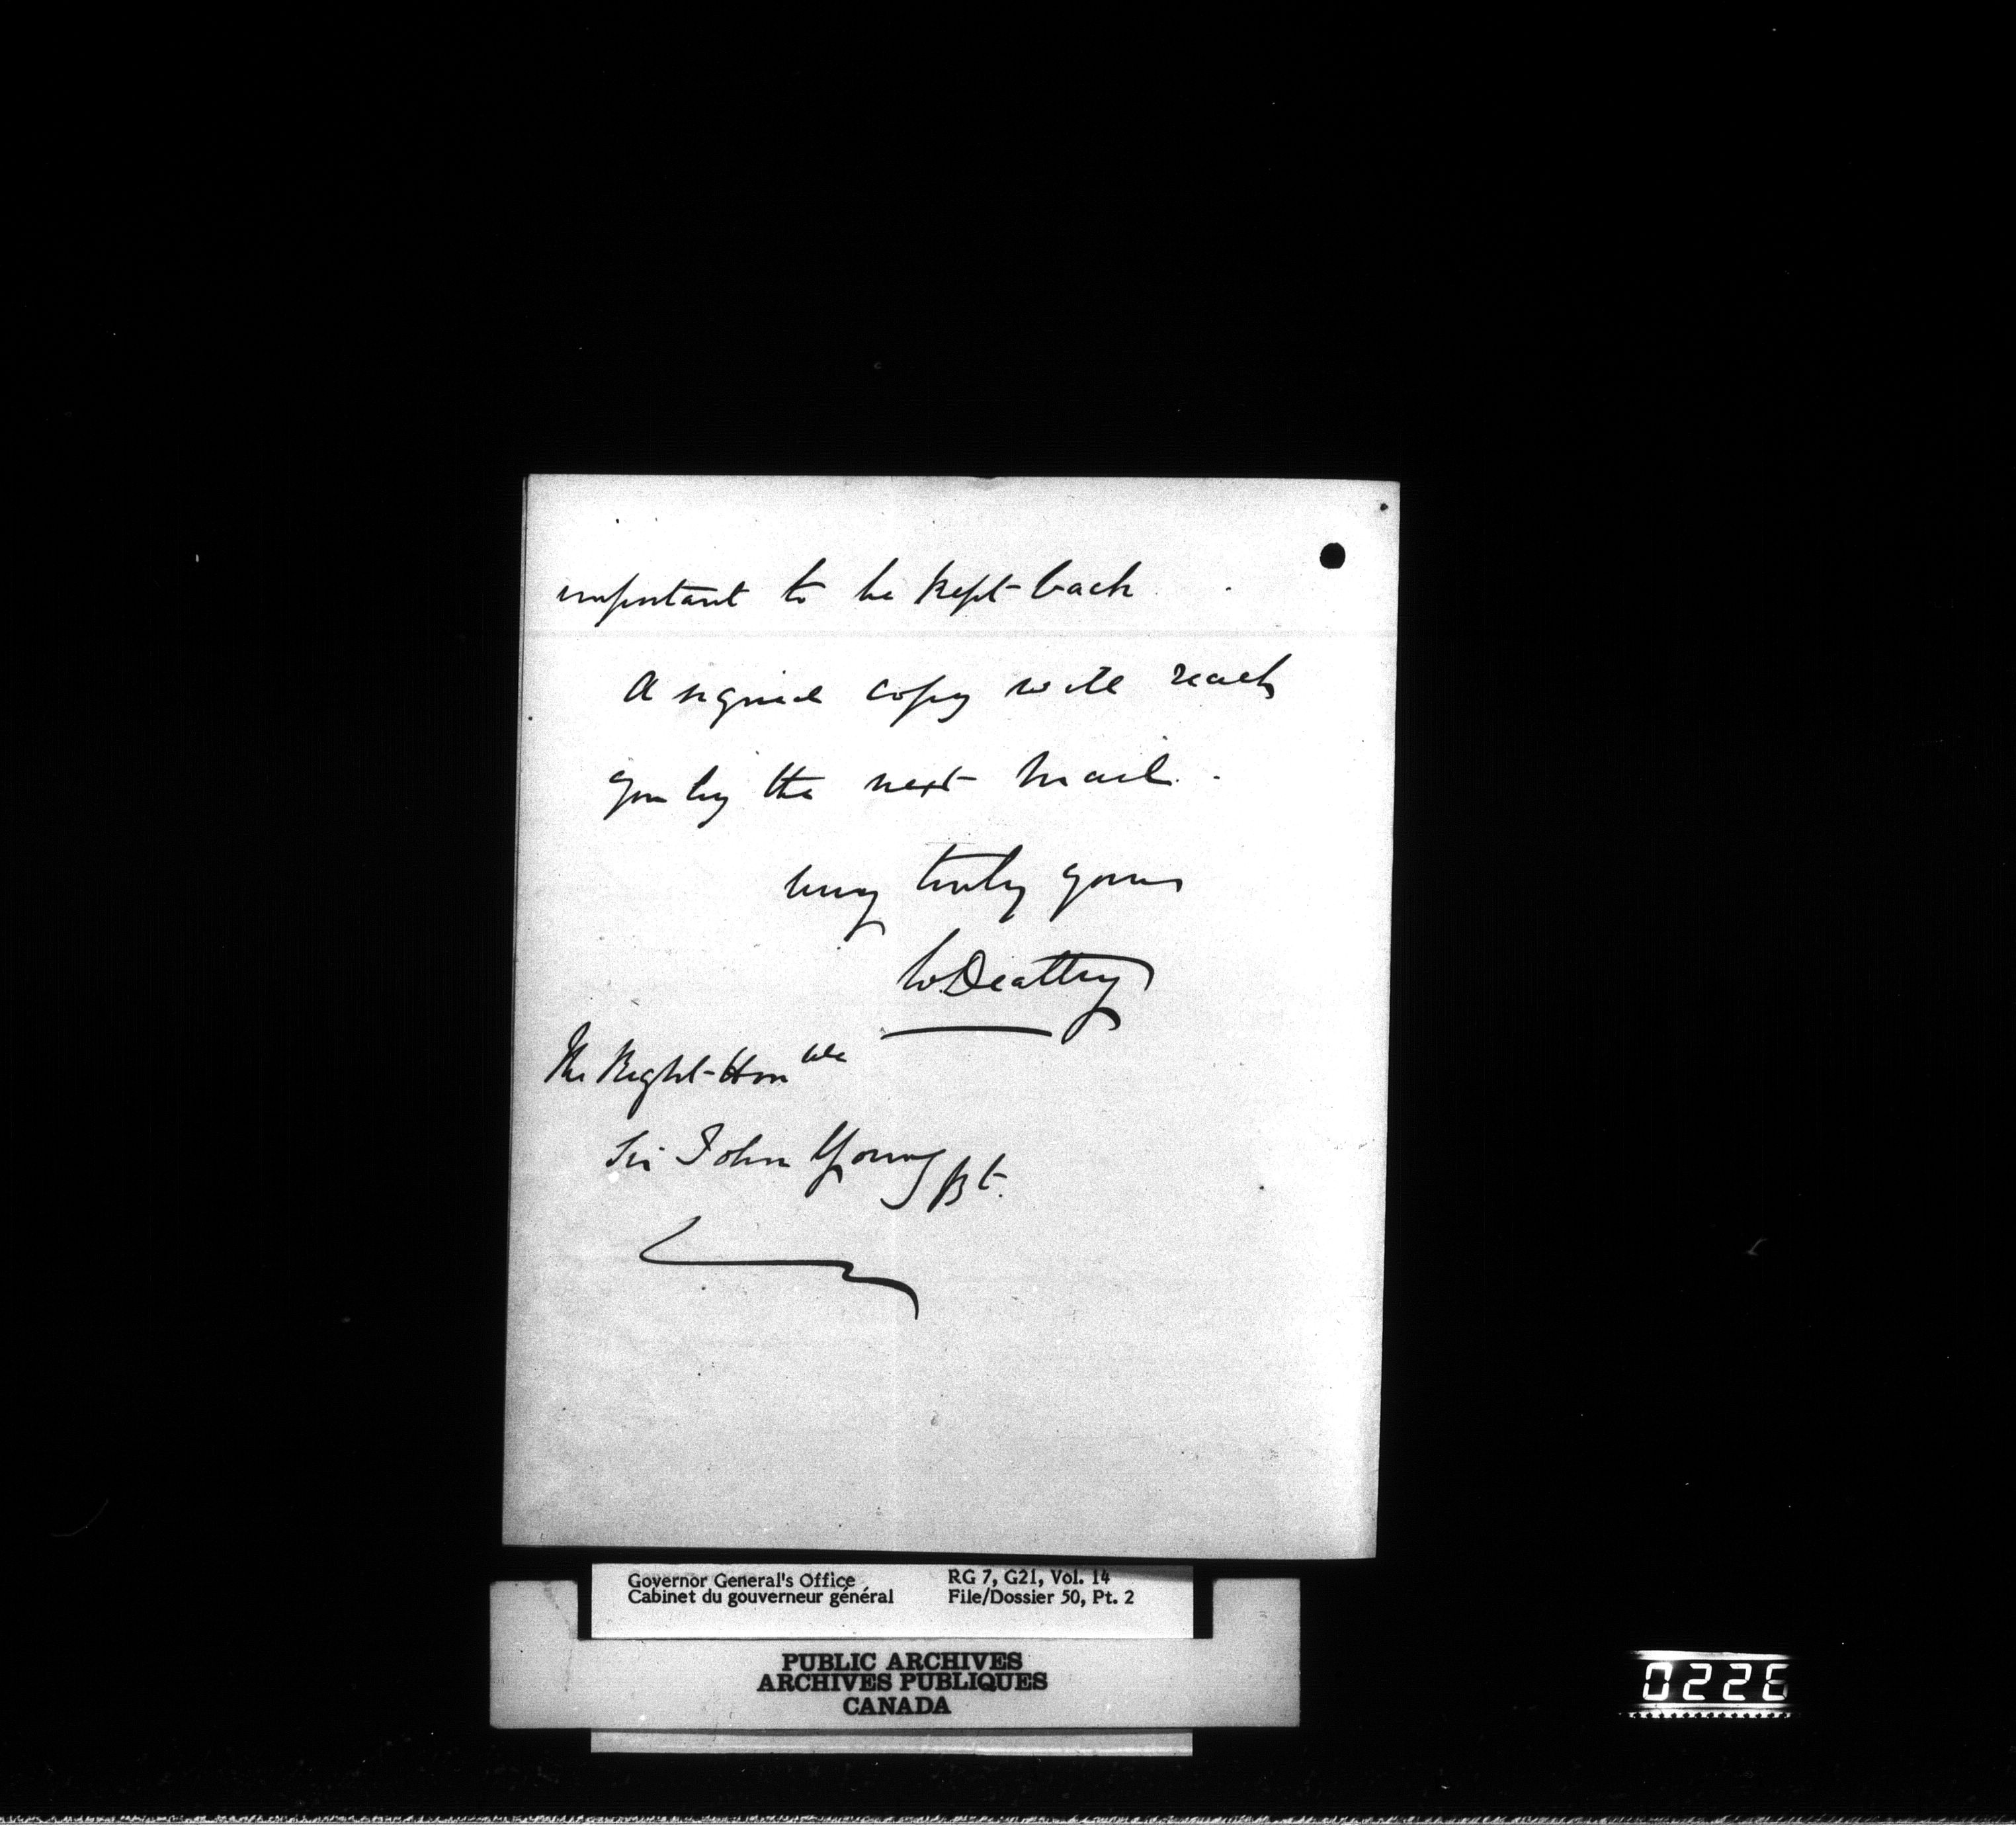 important to be kept back
A signed copy will reach
you by the next mail.
very truly yours
W. Dealtry
The Right Honble
Sir John Young Bt.
Governor General's Office
Cabinet du gouverneur général
RG 7, G21, Vol. 14
File/Dossier 50, Pt. 2
PUBLIC ARCHIVES
ARCHIVES PUBLIQUES
CANADA
0226